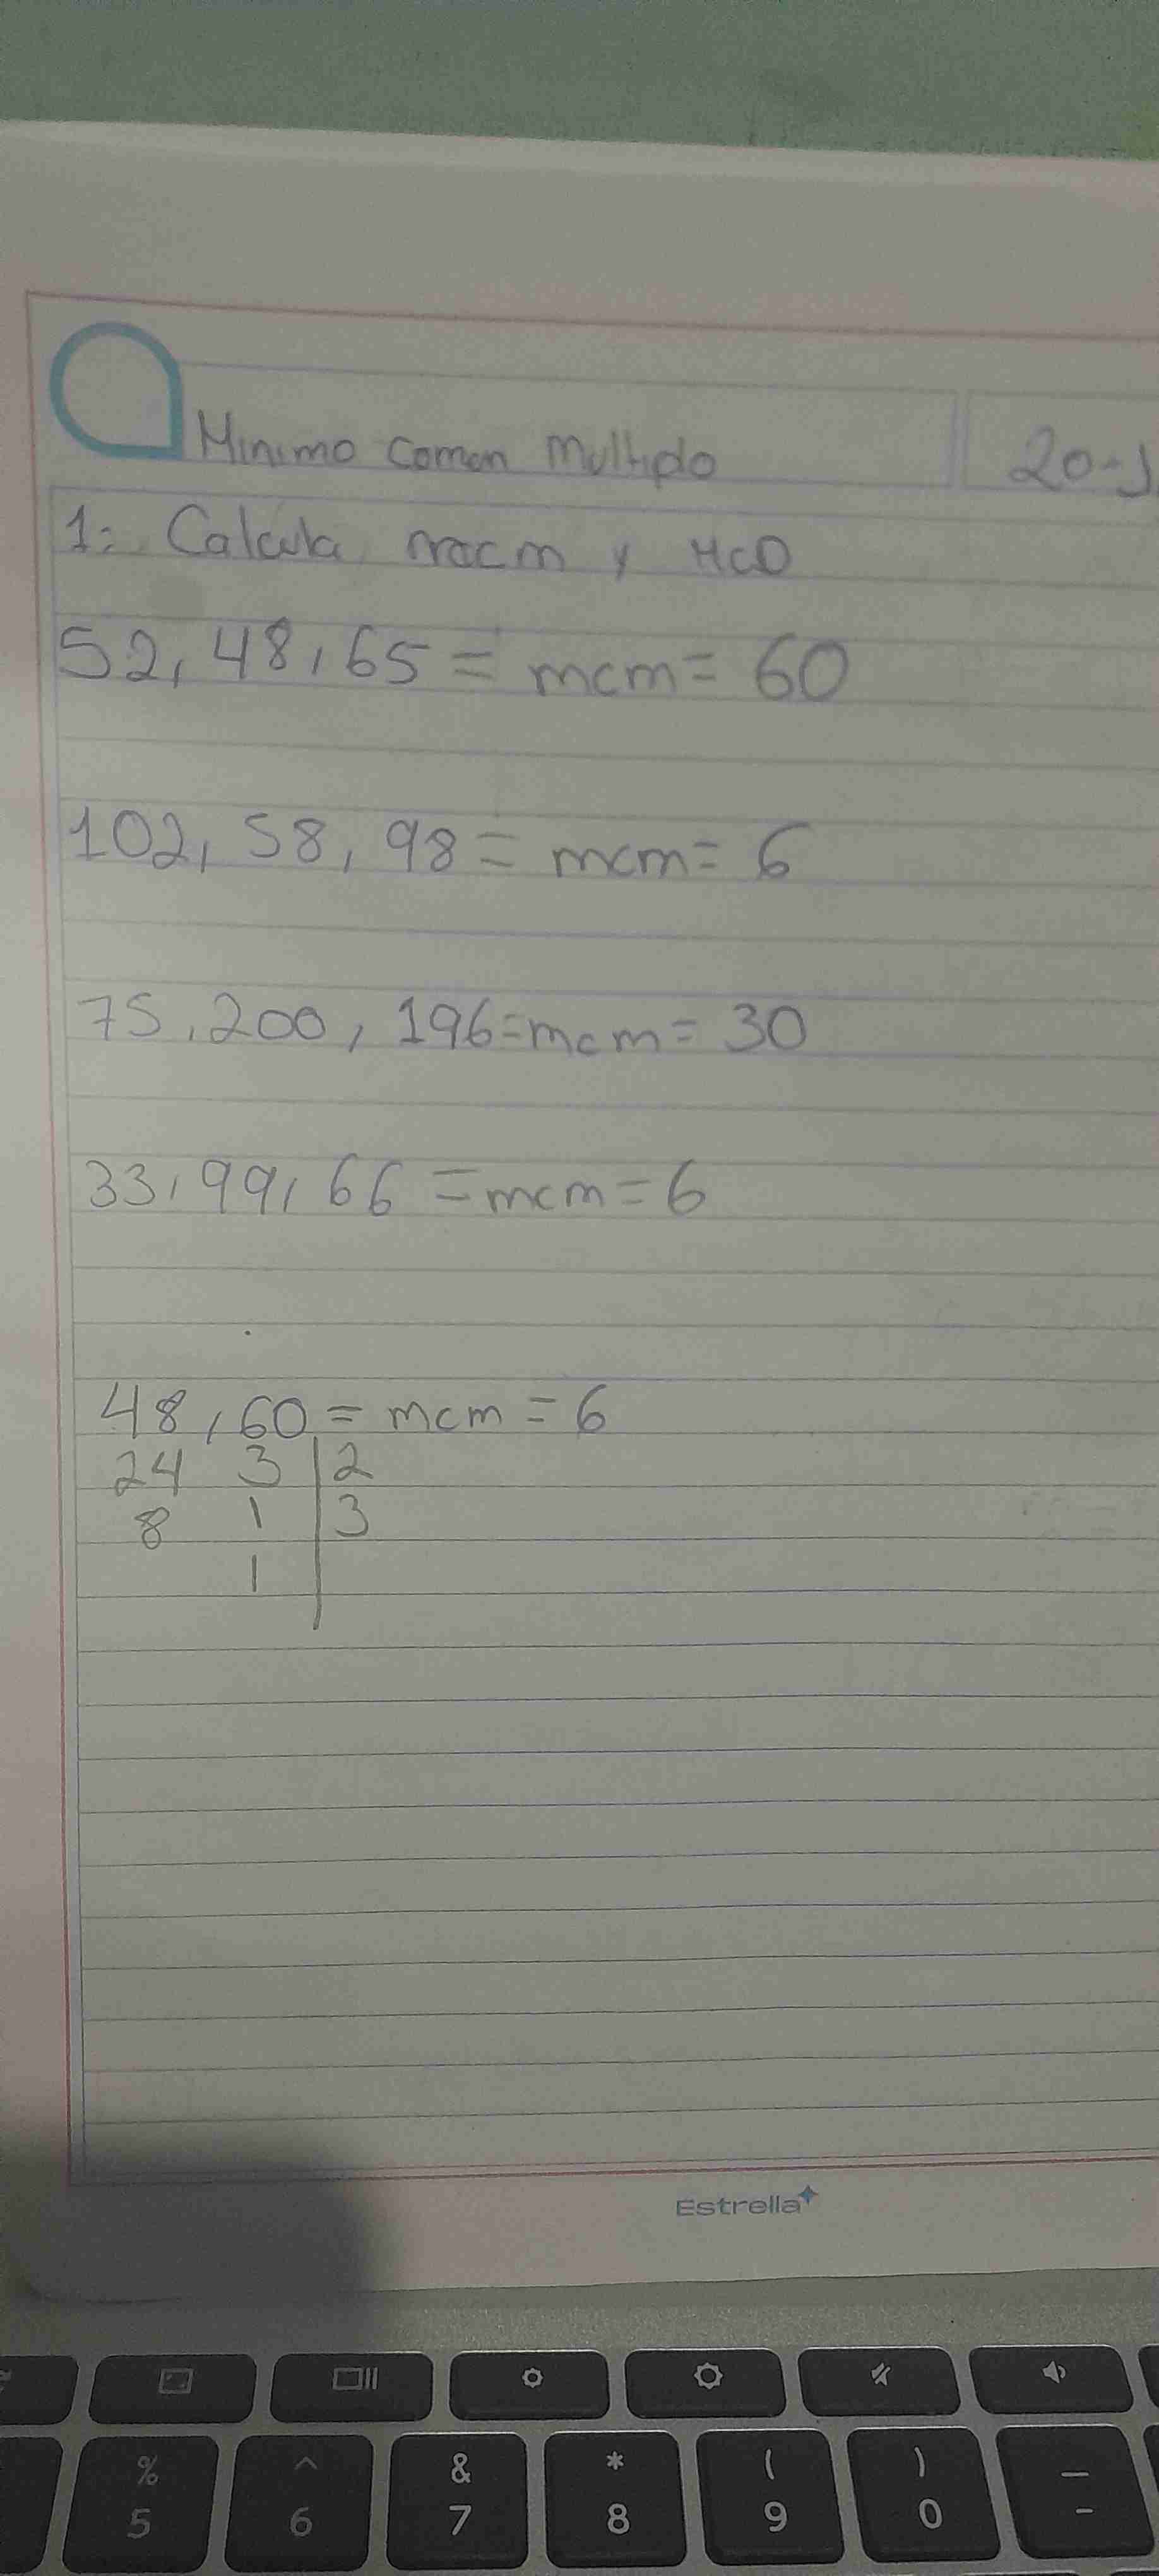 Minimo Comon Multiplo
20-
1: Calcula mcm y MCD
52, 48, 65 = mcm = 60
102, 58, 98 = mcm = 6
75, 200, 196 = mcm = 30
33, 99, 66 = mcm = 6
48, 60 = mcm = 6
24 3 | 2
8 1 | 3
1
Estrella
% ^ & * ( ) —
5 6 7 8 9 0 -